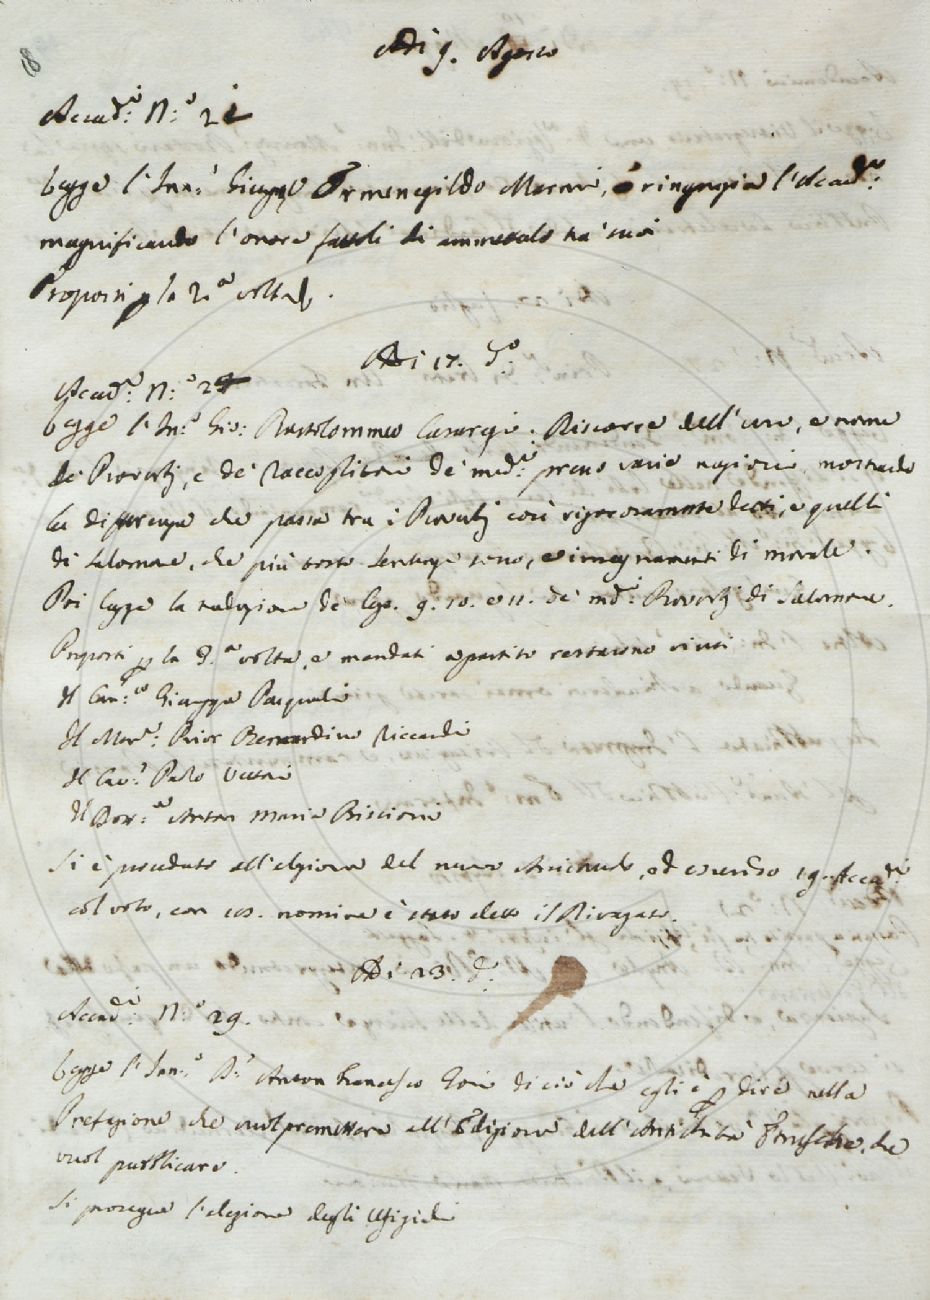 Adi 9. Agosto
Accad.i N.o 21
Legge l'Inn.o Giuseppe Ermenegildo Marmi, e ringrazia l'Accad.a
magnificando l'onore fattoli di ammetterlo tra' suoi
Proposti p la 2.a volta
Adi 17. d.o
Accad.i N.o 29
Legge l'Inn.o Gio: Bartolommeo Casaregi. Discorre dell'uso, e nome
de Proverbj, e de' Raccoglitori de' med.i presso varie nazioni, mostrando
la differenza che passa tra i Proverbj così rigorosamente detti, e quelli
di Salomone, che più tosto sentenze sono, e insegnamenti di morale.
Poi legge la traduzione de Cap. 9. 10. e 11. de' med.i Proverbj di Salomone.
Proposti p la 3.a volta, e mandati a partito restarono vinti
Il Can.co Giuseppe Pasquali
Il Mar.e Prior Bernardino Riccardi
Il Cav.r Paolo Vettori
Il Dott.re Anton Maria Biscioni
Si è proceduto all'elezione del nuovo Arciconsolo, ed essendo 19. Accad.i
col voto, con nomina è stato detto il Rivagato.
Adi 23. d.o
Accad.i N.o 29.
Legge l'Inn.o D.r Anton Francesco Gori di ciò che egli è p dire nella
Prefazione che vuol premettere all'Edizione dell'Antichità Etrusche, che
vuol pubblicare.
Si prosegue l'elezione degli Ufizidi